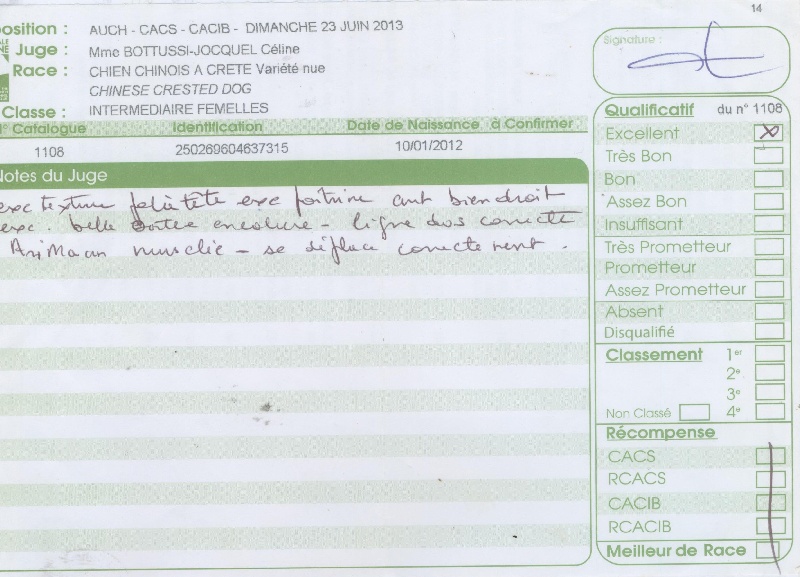 14
position : AUCH - CACS - CACIB - DIMANCHE 23 JUIN 2013
Juge : Mme BOTTUSSI-JOCQUEL Céline
Race : CHIEN CHINOIS A CRETE Variété nue
CHINESE CRESTED DOG
Classe : INTERMEDIAIRE FEMELLES
N° Catalogue Identification Date de Naissance à Confirmer
1108 250269604637315 10/01/2012
Notes du Juge
exc texture jolie tête exc poitrine ant bien droit
exc. belle sortie encolure - ligne dos correcte
musclé - se déplace correctement.
Signature :
Qualificatif du n° 1108
Excellent X
Très Bon
Bon
Assez Bon
Insuffisant
Très Prometteur
Prometteur
Assez Prometteur
Absent
Disqualifié
Classement 1er
2e
3e
Non Classé 4e
Récompense
CACS
RCACS
CACIB
RCACIB
Meilleur de Race